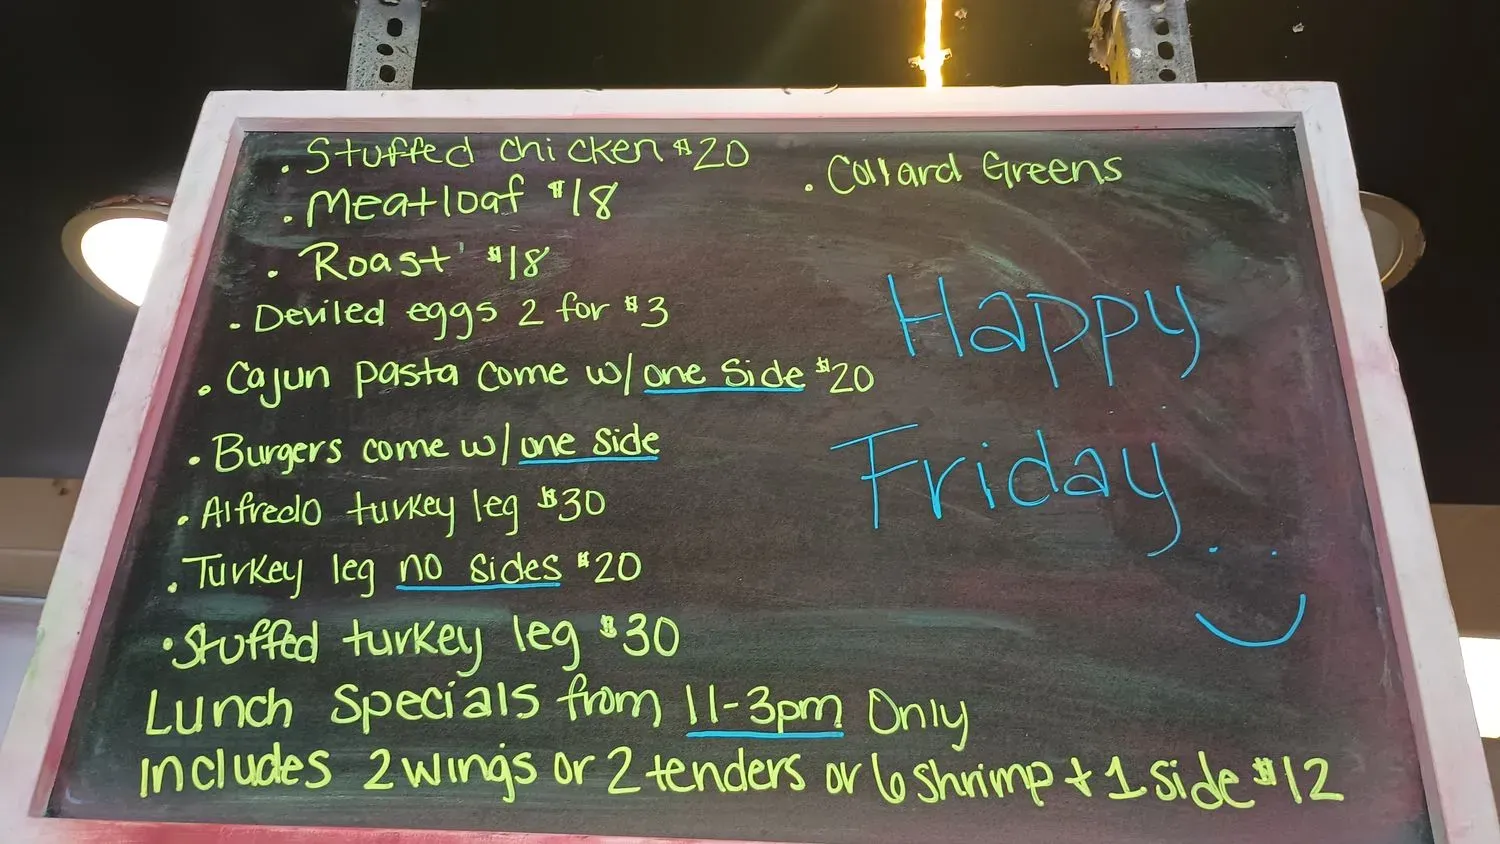 . Stuffed chicken $20
. Meatloaf $18
. Roast $18
. Deviled eggs 2 for $3
. Cajun pasta come w/ one side $20
. Burgers come w/ one side
. Alfredo turkey leg $30
. Turkey leg no sides $20
. Stuffed turkey leg $30
Lunch specials from 11-3pm Only
includes 2 wings or 2 tenders or 6 shrimp + 1 side $12
. Collard Greens
Happy
Friday